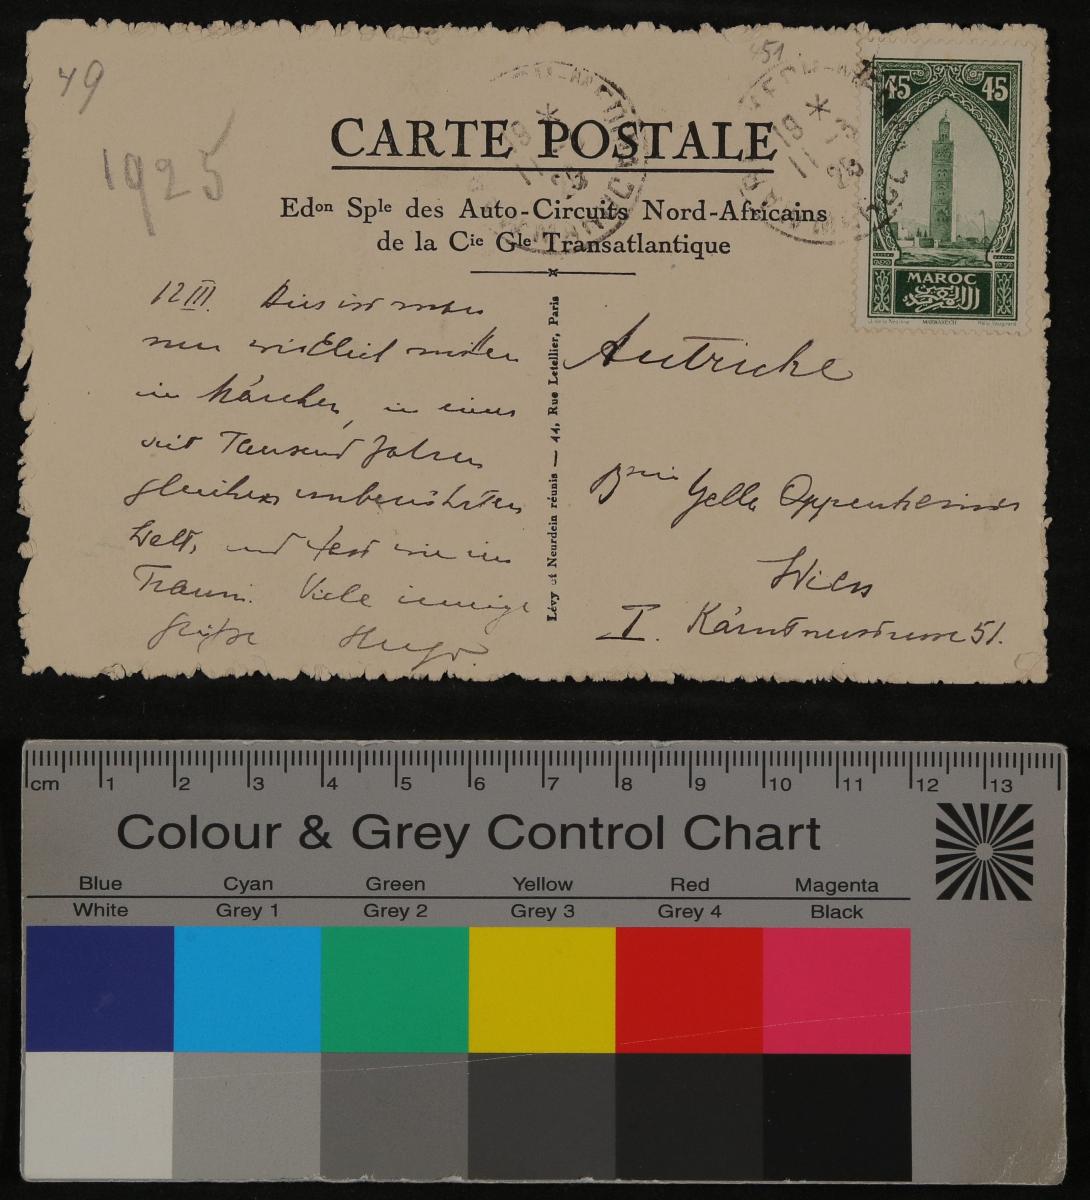 49
451
1925
CARTE POSTALE
Edon Sple des Auto-Circuits Nord-Africains
de la Cie Gle Transatlantique
45 45
MAROC
MARRAKECH
12 III. Dies ist
nun wirklich mitten
im Märchen, in einer
seit Tausend Jahren
gleichen unberührten
Welt, und fast wie im
Traum. Viele innige
Grüße Hugo.
Lévy et Neurdein réunis — 44, Rue Letellier, Paris
Autriche
Yella Oppenheimer
Wien
I. Kärntnerstrasse 51.
cm 1 2 3 4 5 6 7 8 9 10 11 12 13
Colour & Grey Control Chart
Blue Cyan Green Yellow Red Magenta
White Grey 1 Grey 2 Grey 3 Grey 4 Black